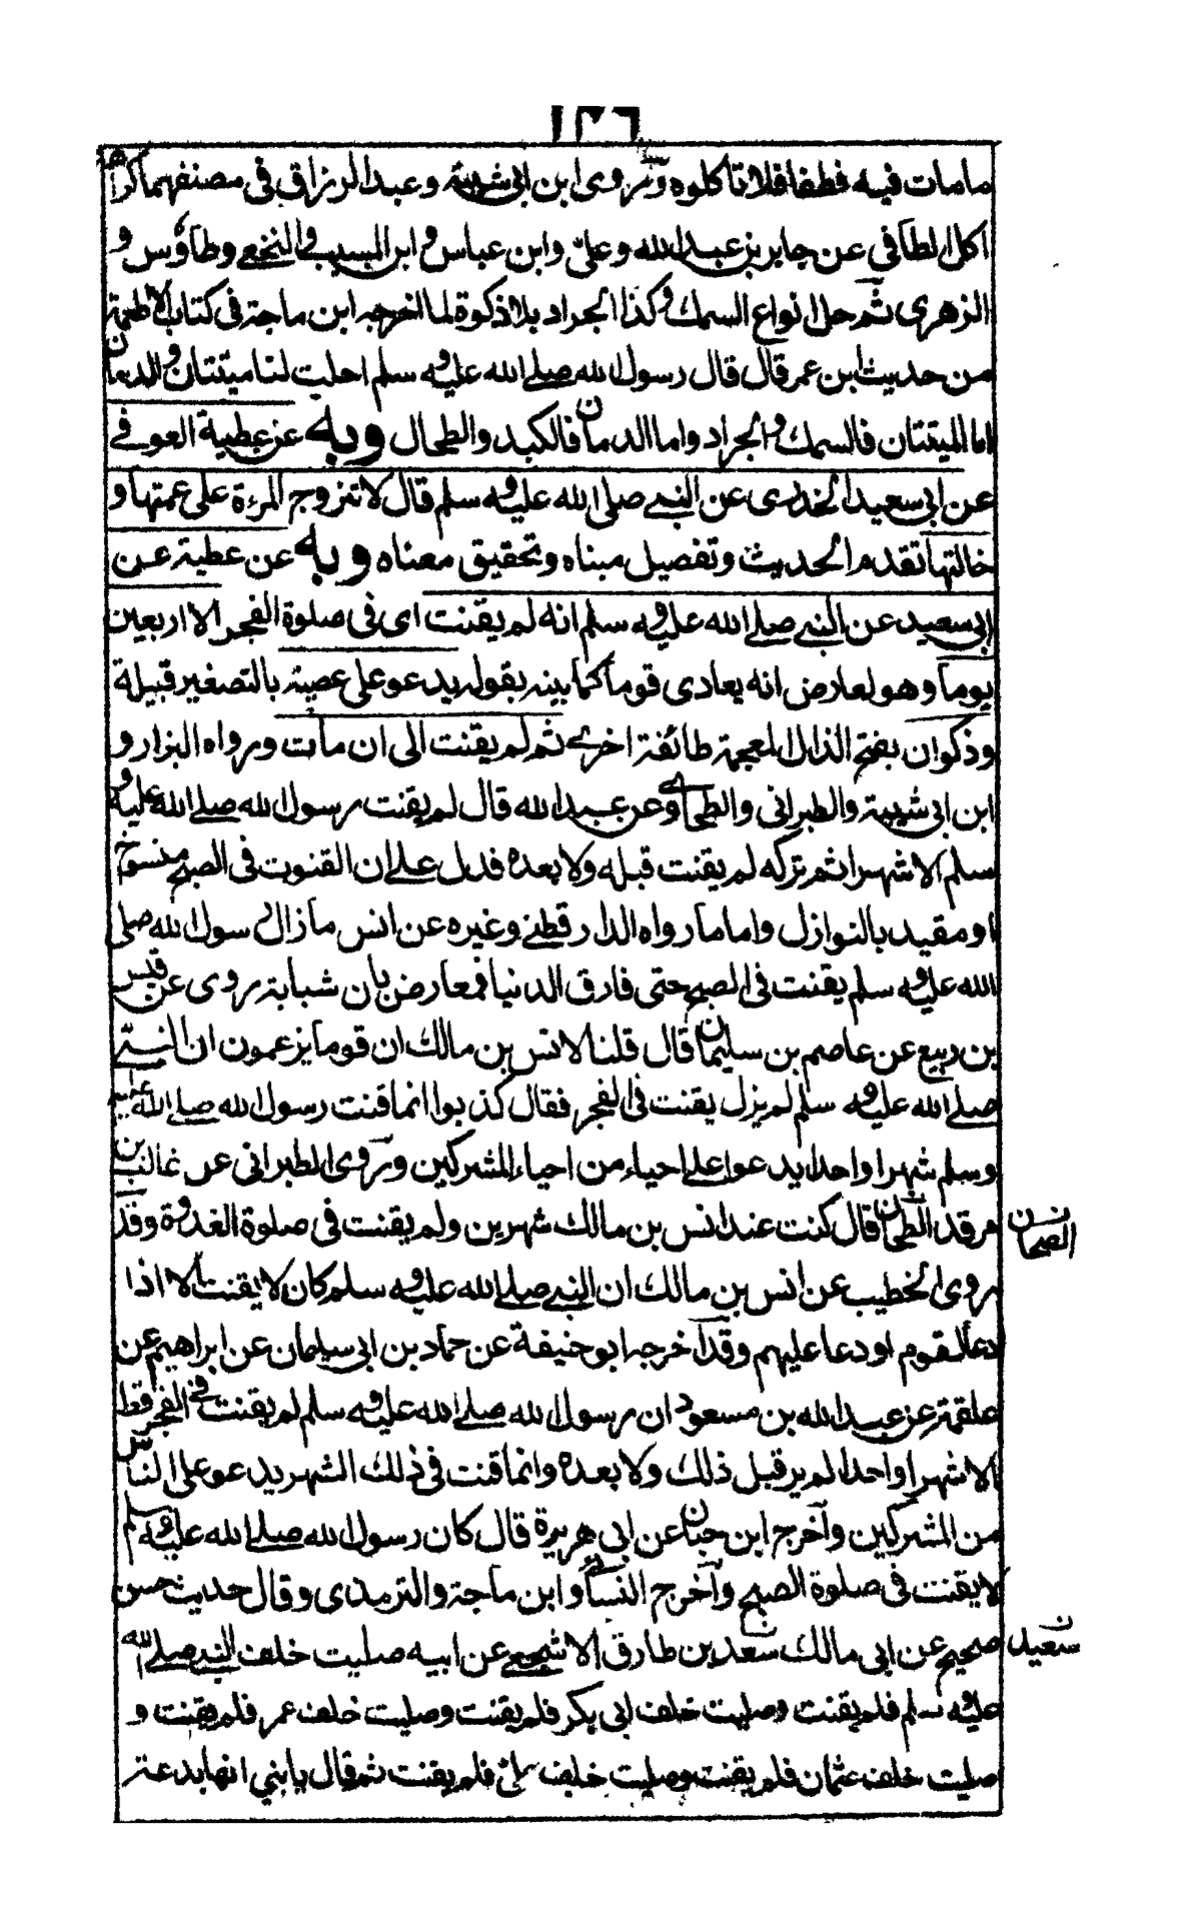 ١٢٦
مامات فيه فطفا فلا تاكلوه وروى ابن ابى شيبة وعبد الرزاق فى مصنفهما كراهة
اكل الطافي عن جابر بن عبد الله وعلىّ وابن عباس و ابن المسيب والنخعى وطاوس و
الزهرى ثم حل انواع السمك وكذا الجراد بلا ذكوة لما اخرجه ابن ماجة فى كتاب الاطعمة
من حديث ابن عمر قال قال رسول الله صلى الله عليه و سلم احلت لنا ميتتان والدمان
اما الميتتان فالسمك والجراد واما الدمان فالكبد والطحال وبه عن عطية العوفى
عن ابى سعيد الخدرى عن النبى صلى الله عليه و سلم قال لا تتزوج المرءة على عمتها و
خالتها تقدم الحديث وتفصيل مبناه وتحقيق معناه وبه عن عطية عن
ابى سعيد عن النبى صلى الله عليه و سلم انه لم يقنت اى فى صلوة الفجر الا اربعين
يوما وهو لعارض انه يعادى قوما كما بينه بقوله يدعو على عصية بالتصغير قبيلة
وذكوان بفتح الذال المعجمة طائفة اخرى ثم لم يقنت الى ان مات ورواه البزار و
ابن ابى شيبة والطبرانى والطحاوى عن عبد الله قال لم يقنت رسول الله صلى الله عليه و
سلم الا شهرا ثم تركه لم يقنت قبله ولا بعده فدل على ان القنوت فى الصبح منسوخ
او مقيد بالنوازل واما ما رواه الدارقطنى وغيره عن انس مازال رسول الله صلى
الله عليه و سلم يقنت فى الصبح حتى فارق الدنيا فمعارض بان شبابة روى عن قيس
بن ربيع عن عاصم بن سليمان قال قلنا لانس بن مالك ان قوما يزعمون ان النبى
صلى الله عليه و سلم لم يزل يقنت فى الفجر فقال كذبوا انما قنت رسول الله صلى الله عليه
وسلم شهرا واحدا يدعو على احياء من احياء المشركين وروى الطبرانى عن غالب بن
فرقد الطحان قال كنت عند انس بن مالك شهرين ولم يقنت فى صلوة الغدوة وقد
روى الخطيب عن انس بن مالك ان النبى صلى الله عليه و سلم كان لا يقنت الا اذا
دعا لقوم او دعا عليهم وقد اخرجه ابو حنيفة عن حماد بن ابى سليمان عن ابراهيم عن
علقمة عن عبد الله بن مسعود ان رسول الله صلى الله عليه و سلم لم يقنت فى الفجر قط
الا شهرا واحدا لم ير قبل ذلك ولا بعده وانما قنت فى ذلك الشهر يدعو على الناس
من المشركين واخرج ابن حبان عن ابى هريرة قال كان رسول الله صلى الله عليه و سلم
لا يقنت فى صلوة الصبح واخرج النسائى وابن ماجة والترمذى وقال حديث حسن
صحيح عن ابى مالك سعد بن طارق الاشجعى عن ابيه صليت خلف النبى صلى الله
عليه و سلم فلم يقنت وصليت خلف ابى بكر فلم يقنت وصليت خلف عمر فلم يقنت و
صليت خلف عثمان فلم يقنت وصليت خلف علىّ فلم يقنت ثم قال يا بني انها بدعة
ن
سعيد